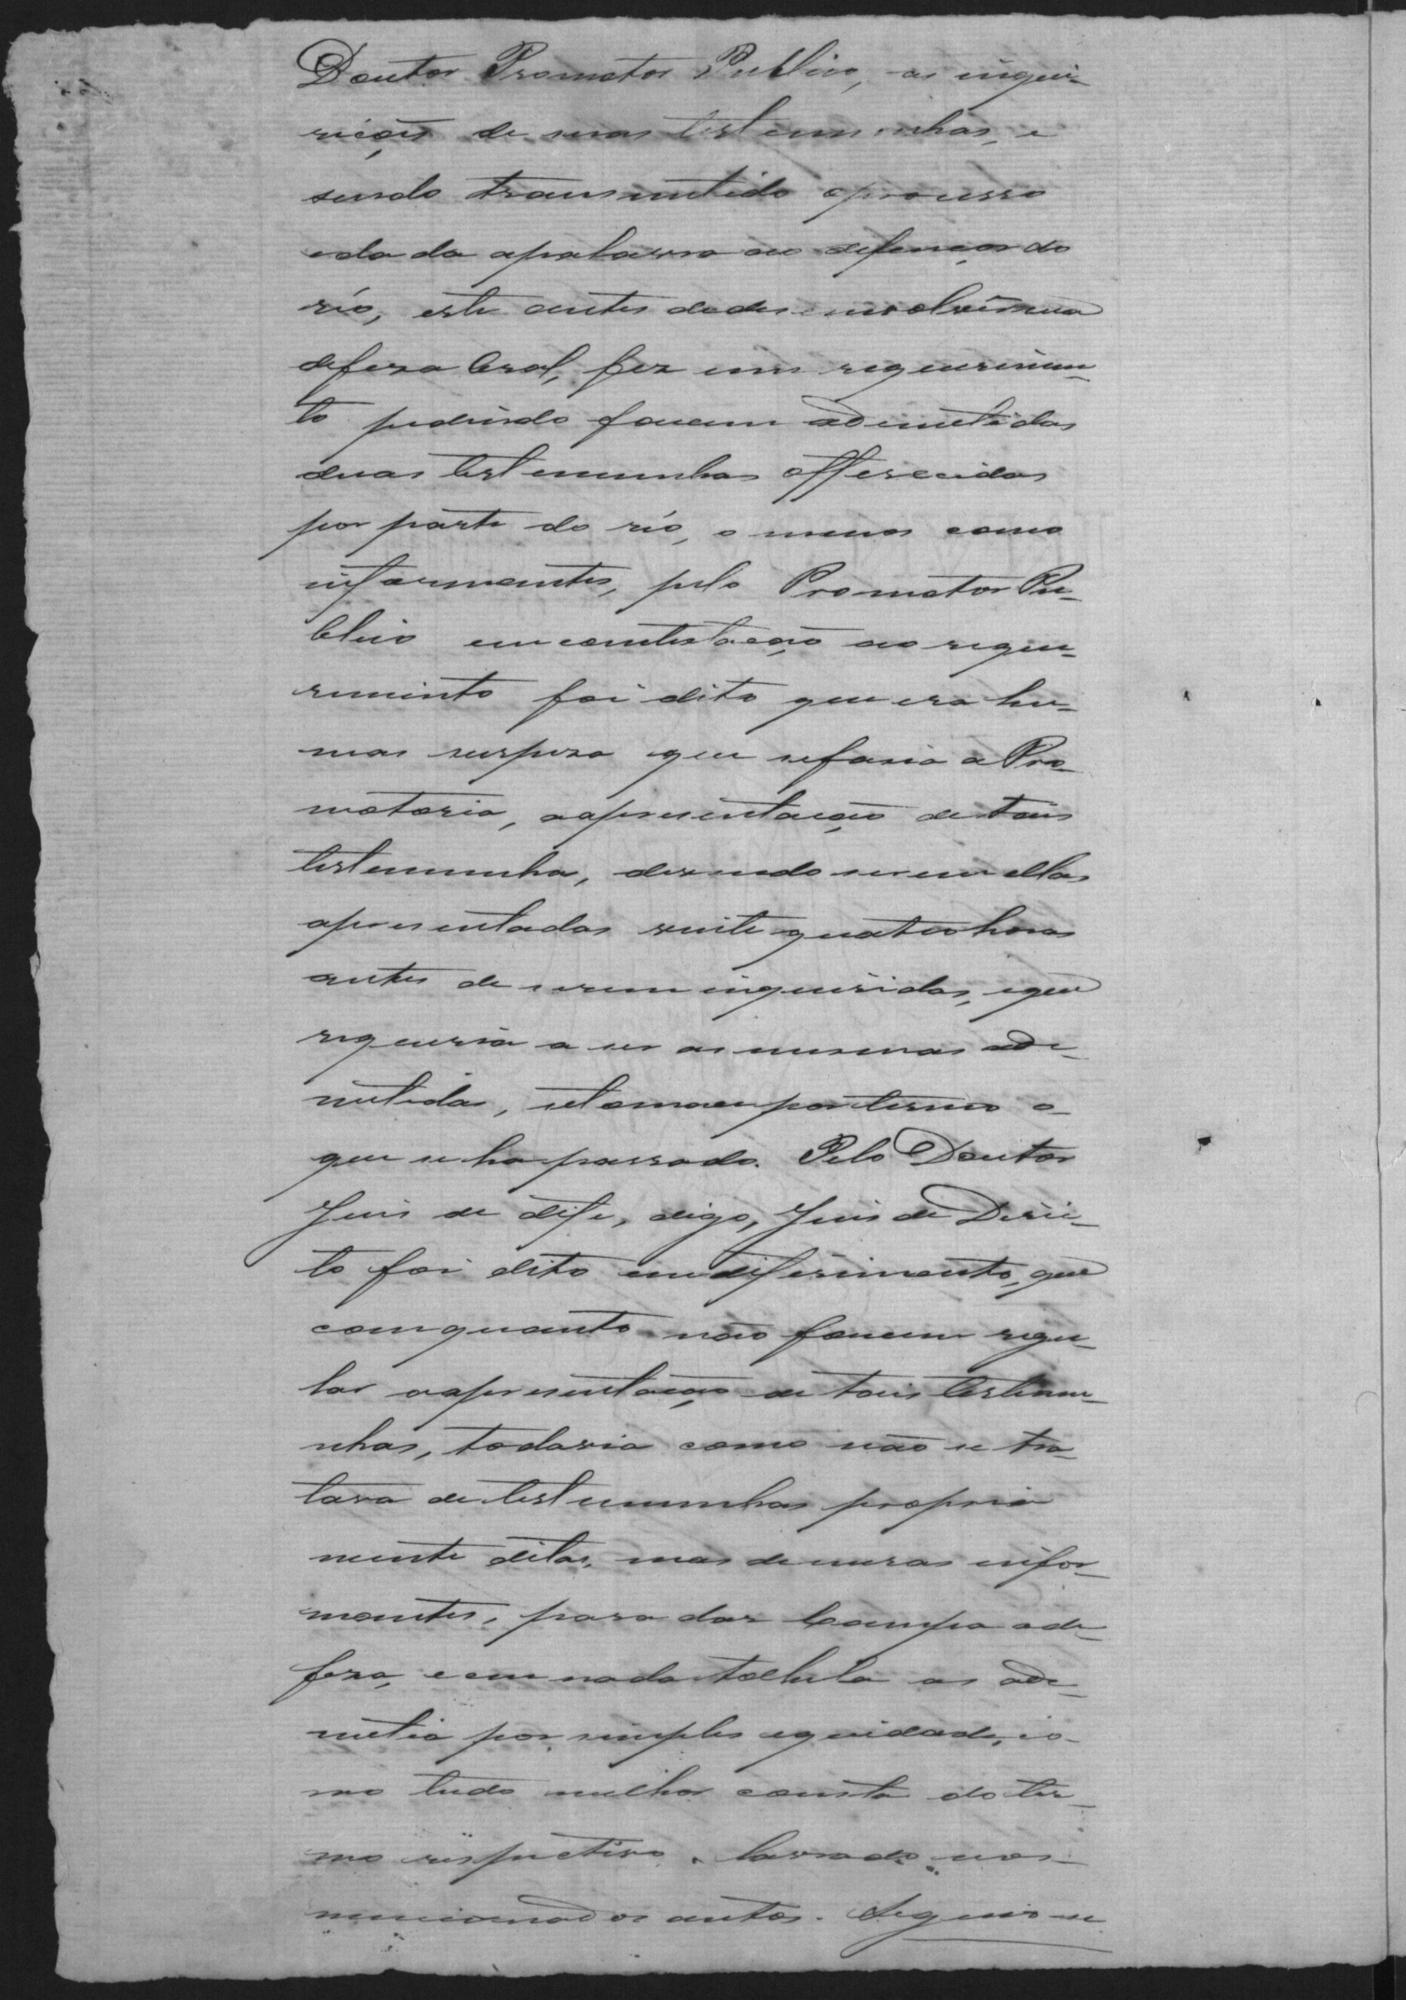 Doutor Promotor Publico, as inqui-
rições de suas testemunhas, e
sendo transmettido o processo
e dada a palavra ao defensor do
réo, este antes de desinvolver sua
defeza Oral, fez um requerimen-
to pedindo fossem admettidas
duas testemunhas offerecidas
por parte do réo, o menos como
informantes, pelo Promotor Pu-
blico em contestação ao reque-
rimento foi dito que era hu-
mas surpeza que se fasia a Pro-
motoria, a apresentação de tais
testemunha, devendo serem ellas
apresentadas vinte quatro horas
antes de serem inqueridas, e que
requeria a ser as mesmas ade-
mitidas, se tomace por termo o
que se ha passado. Pelo Doutor
Juis de dife, digo, Juis de Direi-
to foi dito em diferimento, que
comquanto não fossem regu-
lar a apresentação de tais testemu-
nhas, todavia como não se tra-
tava de testemunhas propria
mente ditas, mas de meras infor-
mantes, para dar Campo a de-
feza, e em nada tolhela as ade-
metia por simples equidade, co-
mo tudo melhor consta do ter-
mo respectivo lavrado nos
mencionados autos. Seguio-se